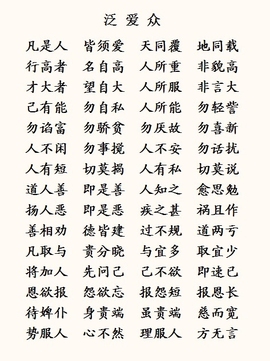 泛爱众
凡是人 皆须爱 天同覆 地同载
行高者 名自高 人所重 非貌高
才大者 望自大 人所服 非言大
己有能 勿自私 人所能 勿轻訾
勿谄富 勿骄贫 勿厌故 勿喜新
人不闲 勿事搅 人不安 勿话扰
人有短 切莫揭 人有私 切莫说
道人善 即是善 人知之 愈思勉
扬人恶 即是恶 疾之甚 祸且作
善相劝 德皆建 过不规 道两亏
凡取与 贵分晓 与宜多 取宜少
将加人 先问己 己不欲 即速已
恩欲报 怨欲忘 报怨短 报恩长
待婢仆 身贵端 虽贵端 慈而宽
势服人 心不然 理服人 方无言